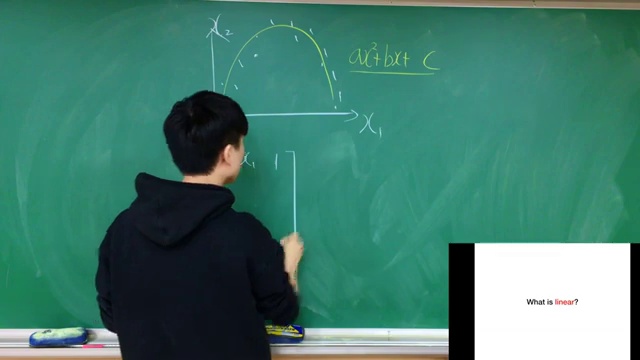 x₂
ax²+bx+ c
x₁
x₁ 1
What is linear?